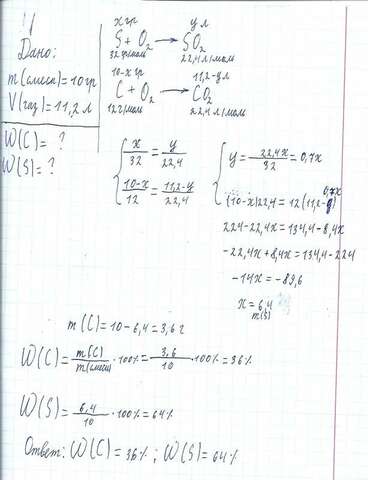 Дано:
m(смеси)=10гр
V(газ)=11,2л
W(C)= ?
W(S)= ?
x гр y л
S + O₂ → SO₂
32 гр/моль 22,4 л/моль
10-x гр 11,2-y л
C + O₂ → CO₂
12 г/моль 22,4 л/моль
x/32 = y/22,4
(10-x)/12 = (11,2-y)/22,4
y = 22,4x/32 = 0,7x
0,7x
(10-x)22,4 = 12(11,2-y)
224-22,4x=134,4-8,4x
-22,4x+8,4x=134,4-224
-14x = -89,6
x = 6,4
m(S)
m(C)=10-6,4=3,6 г
W(C)= m(C)/m(смеси) ·100% = 3,6/10 ·100% = 36%
W(S)= 6,4/10 ·100% = 64%
Ответ: W(C)=36% ; W(S)=64%